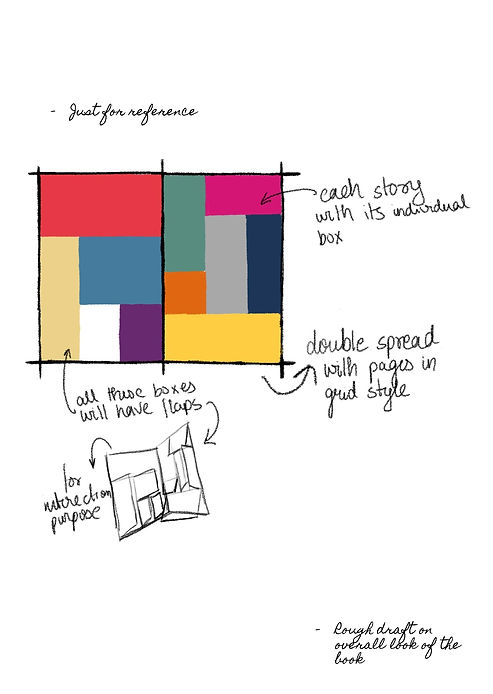 - Just for reference
each story
with its individual
box
double spread
with pages in
grid style
all these boxes
will have flaps
for
interection
purpose
- Rough draft on
overall look of the
book